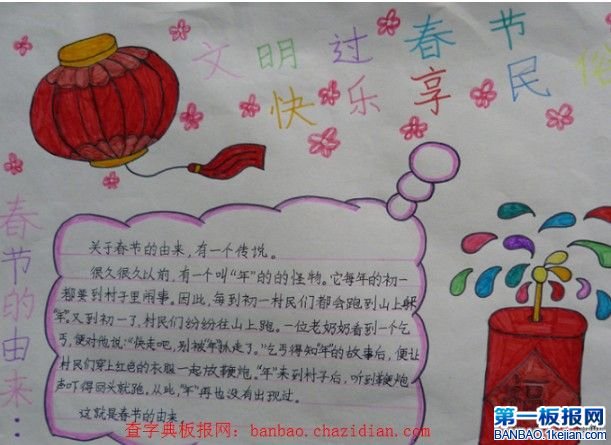 文明过春节
快乐享民俗
春节的由来…
关于春节的由来,有一个传说。
很久很久以前,有一个叫“年”的的怪物。它每年的初一
都要到村子里闹事。因此,每到初一村民们都会跑到山上躲
“年”又到初一了,村民们纷纷往山上跑。一位老奶奶看到一个乞
丐,便对他说:“快走吧,别被“年”抓走了。”乞丐得知“年”的故事后,便让
村民们穿上红色的衣服一起放鞭炮。“年”来到村子后,听到鞭炮
声吓得回头就跑。从此,“年”再也没有出现过。
这就是春节的由来
福
查字典板报网:banbao.chazidian.com
第一板报网
BANBAO.1kejian.com